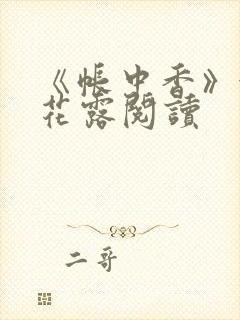 《帳中香》
花露閱讀
二哥